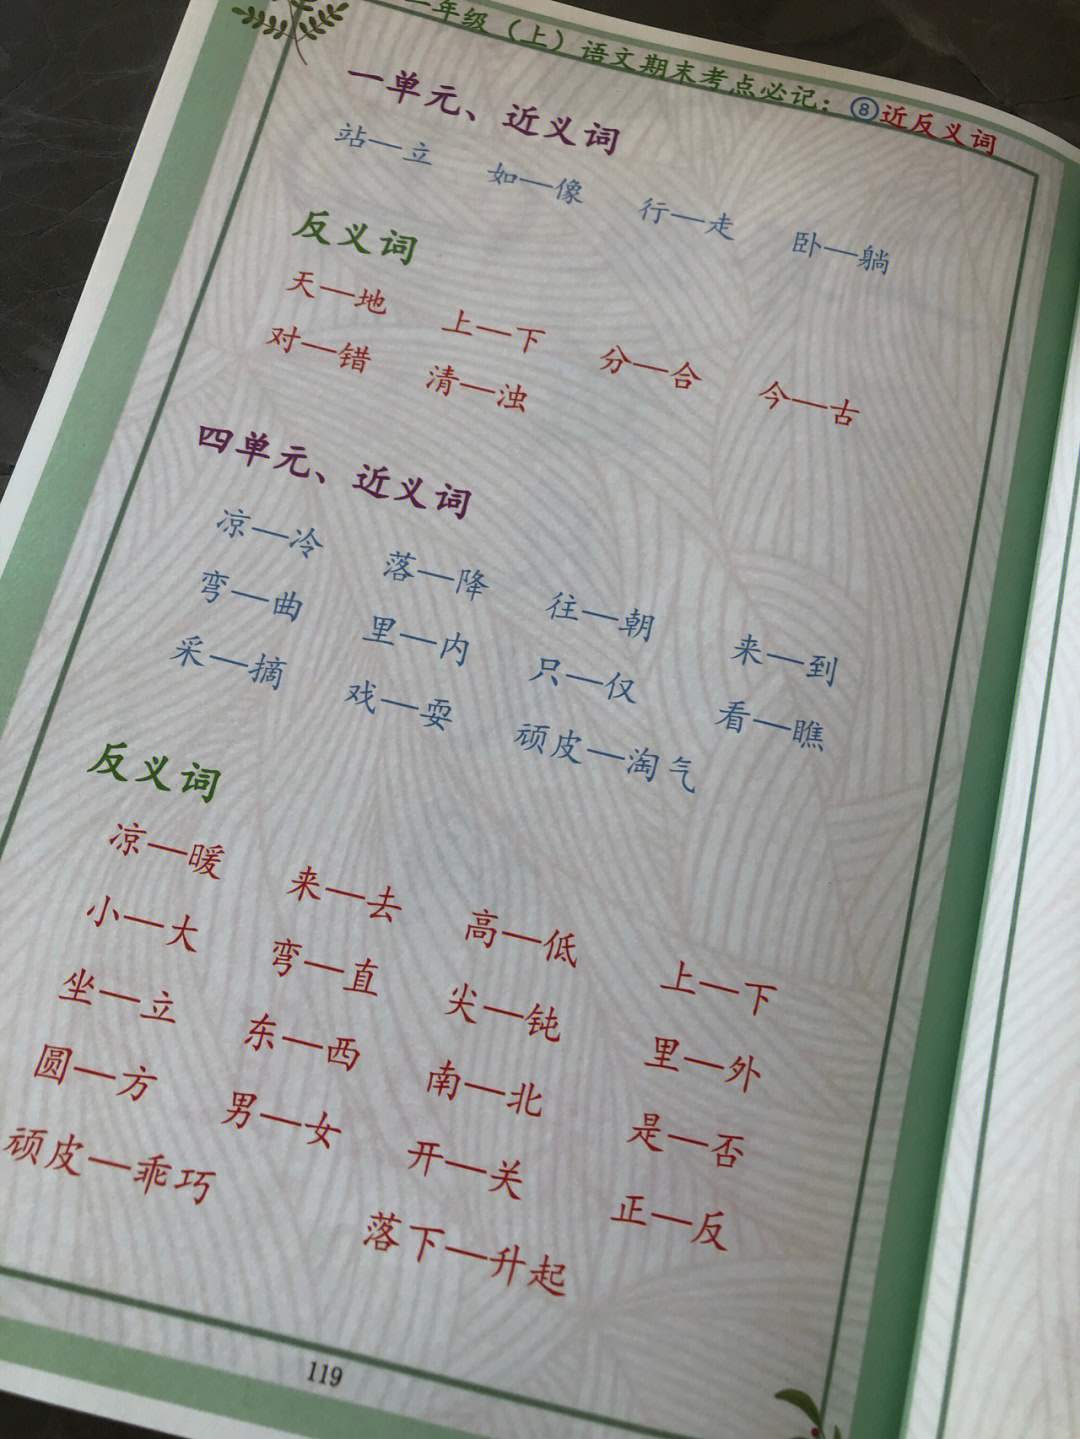 年级（上）语文期末考点必记：⑧近反义词
一单元、近义词
站—立 如—像 行—走 卧—躺
反义词
天—地 上—下 分—合 今—古
对—错 清—浊
四单元、近义词
凉—冷 落—降 往—朝 来—到
弯—曲 里—内 只—仅 看—瞧
采—摘 戏—耍 顽皮—淘气
反义词
凉—暖 来—去 高—低 上—下
小—大 弯—直 尖—钝 里—外
坐—立 东—西 南—北 是—否
圆—方 男—女 开—关 正—反
顽皮—乖巧 落下—升起
119